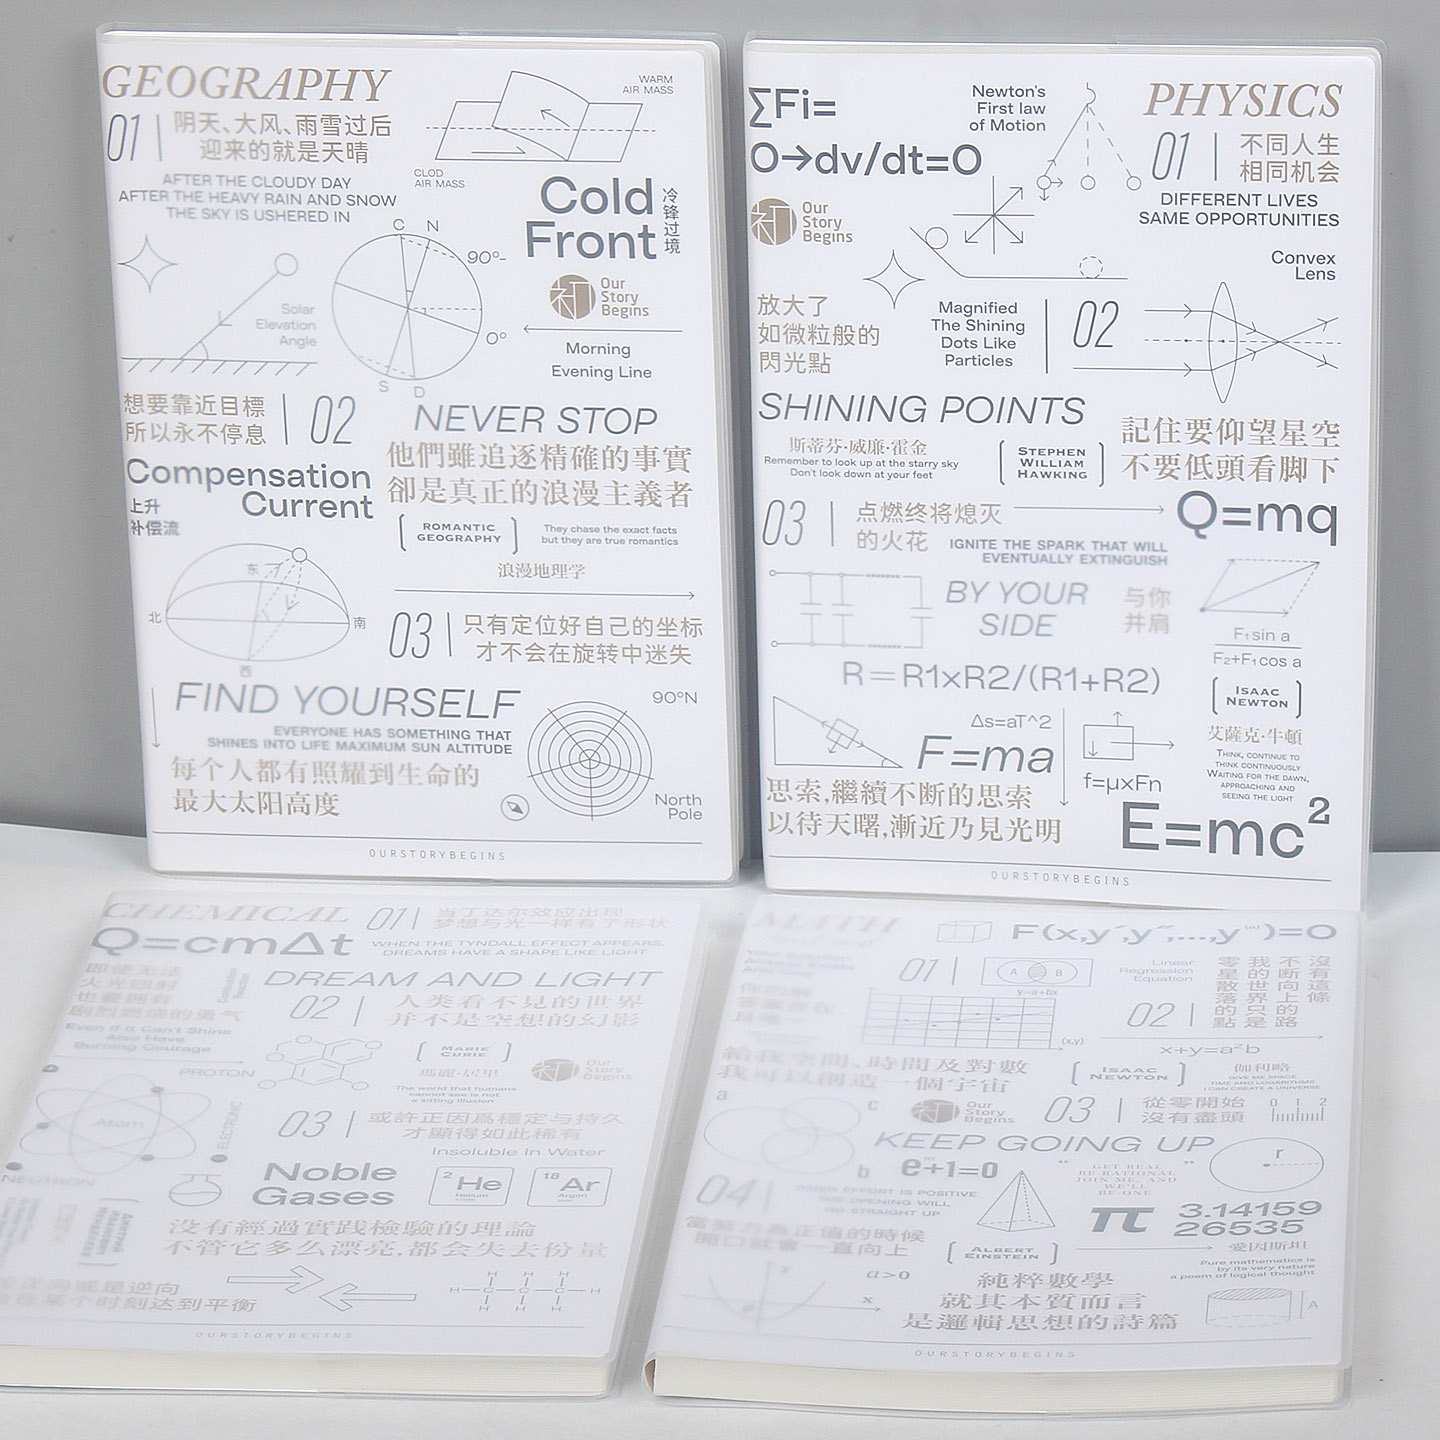 GEOGRAPHY
01
阴天、大风、雨雪过后
迎来的就是天晴
AFTER THE CLOUDY DAY
AFTER THE HEAVY RAIN AND SNOW
THE SKY IS USHERED IN
WARM
AIR MASS
CLOD
AIR MASS
Cold
Front
冷锋过境
C N
90°
0°
S D
Solar
Elevation
Angle
Our
Story
Begins
Morning
Evening Line
想要靠近目標
所以永不停息
02
NEVER STOP
他們雖追逐精確的事實
卻是真正的浪漫主義者
Compensation
Current
上升
补偿流
ROMANTIC
GEOGRAPHY
They chase the exact facts
but they are true romantics
浪漫地理学
东
北
南
西
03
只有定位好自己的坐标
才不会在旋转中迷失
FIND YOURSELF
EVERYONE HAS SOMETHING THAT
SHINES INTO LIFE MAXIMUM SUN ALTITUDE
每个人都有照耀到生命的
最大太阳高度
90°N
North
Pole
OURSTORYBEGINS
∑Fi=
0→dv/dt=0
Newton's
First law
of Motion
PHYSICS
01
不同人生
相同机会
DIFFERENT LIVES
SAME OPPORTUNITIES
Our
Story
Begins
Convex
Lens
放大了
如微粒般的
閃光點
Magnified
The Shining
Dots Like
Particles
02
SHINING POINTS
斯蒂芬·威廉·霍金
Remember to look up at the starry sky
Don't look down at your feet
STEPHEN
WILLIAM
HAWKING
記住要仰望星空
不要低頭看脚下
03
点燃终将熄灭
的火花
Q=mq
IGNITE THE SPARK THAT WILL
EVENTUALLY EXTINGUISH
BY YOUR
SIDE
与你
并肩
F₁sin a
F₂+F₁cos a
R=R1xR2/(R1+R2)
ISAAC
NEWTON
艾薩克·牛頓
THINK, CONTINUE TO
THINK CONTINUOUSLY
WAITING FOR THE DAWN,
APPROACHING AND
SEEING THE LIGHT
Δs=aT^2
F=ma
f=μ×Fn
思索,繼續不断的思索
以待天曙,漸近乃見光明
E=mc²
OURSTORYBEGINS
CHEMICAL
01
当丁达尔效应出现
梦想与光一样有了形状
Q=cmΔt
WHEN THE TYNDALL EFFECT APPEARS,
DREAMS HAVE A SHAPE LIKE LIGHT
即使无法
火光四射
也要拥有
剧烈燃烧的勇气
DREAM AND LIGHT
02
人类看不見的世界
并不是空想的幻影
Even If It Can't Shine
Also Have
Burning Courage
MARIE
CURIE
瑪麗·居里
The world that humans
cannot see is not
a sitting illusion
Our
Story
Begins
PROTON
Atom
ELECTRONIC
NEUTRON
03
或許正因爲穩定与持久
才顯得如此稀有
Insoluble In Water
Noble
Gases
2 He
Helium
18 Ar
Argon
没有經過實践檢驗的理論
不管它多么漂亮,都会失去份量
正向或是逆向
在某个时刻达到平衡
H H H
H C C C H
H H H
OURSTORYBEGINS
MATH
F(x,y´,y˝,...,y⁽ⁿ⁾)=0
01
A B
y=a+bx
Linear
Regression
Equation
零星散落點
我的世界的是
不断向上的
沒有這條路
02
(x,y)
x+y=a²b
給我空間、時間及對數
我可以創造一個宇宙
ISAAC
NEWTON
伽利略
GIVE ME SPACE
TIME AND LOGARITHMS
I CAN CREATE A UNIVERSE
a c
b
Our
Story
Begins
03
從零開始
沒有盡頭
0 1 2
KEEP GOING UP
r
04
WHEN EFFORT IS POSITIVE
THE OPENING WILL
GO STRAIGHT UP
GET REAL
BE RATIONAL
JOIN ME, AND
WE'LL
BE ONE
π
3.14159
26535
當努力為正值的時候
開口就會一直向上
ALBERT
EINSTEIN
愛因斯坦
Pure mathematics is
by its very nature
a poem of logical thought
y
a>0
x
純粹數學
就其本質而言
是邏輯思想的詩篇
A
OURSTORYBEGINS